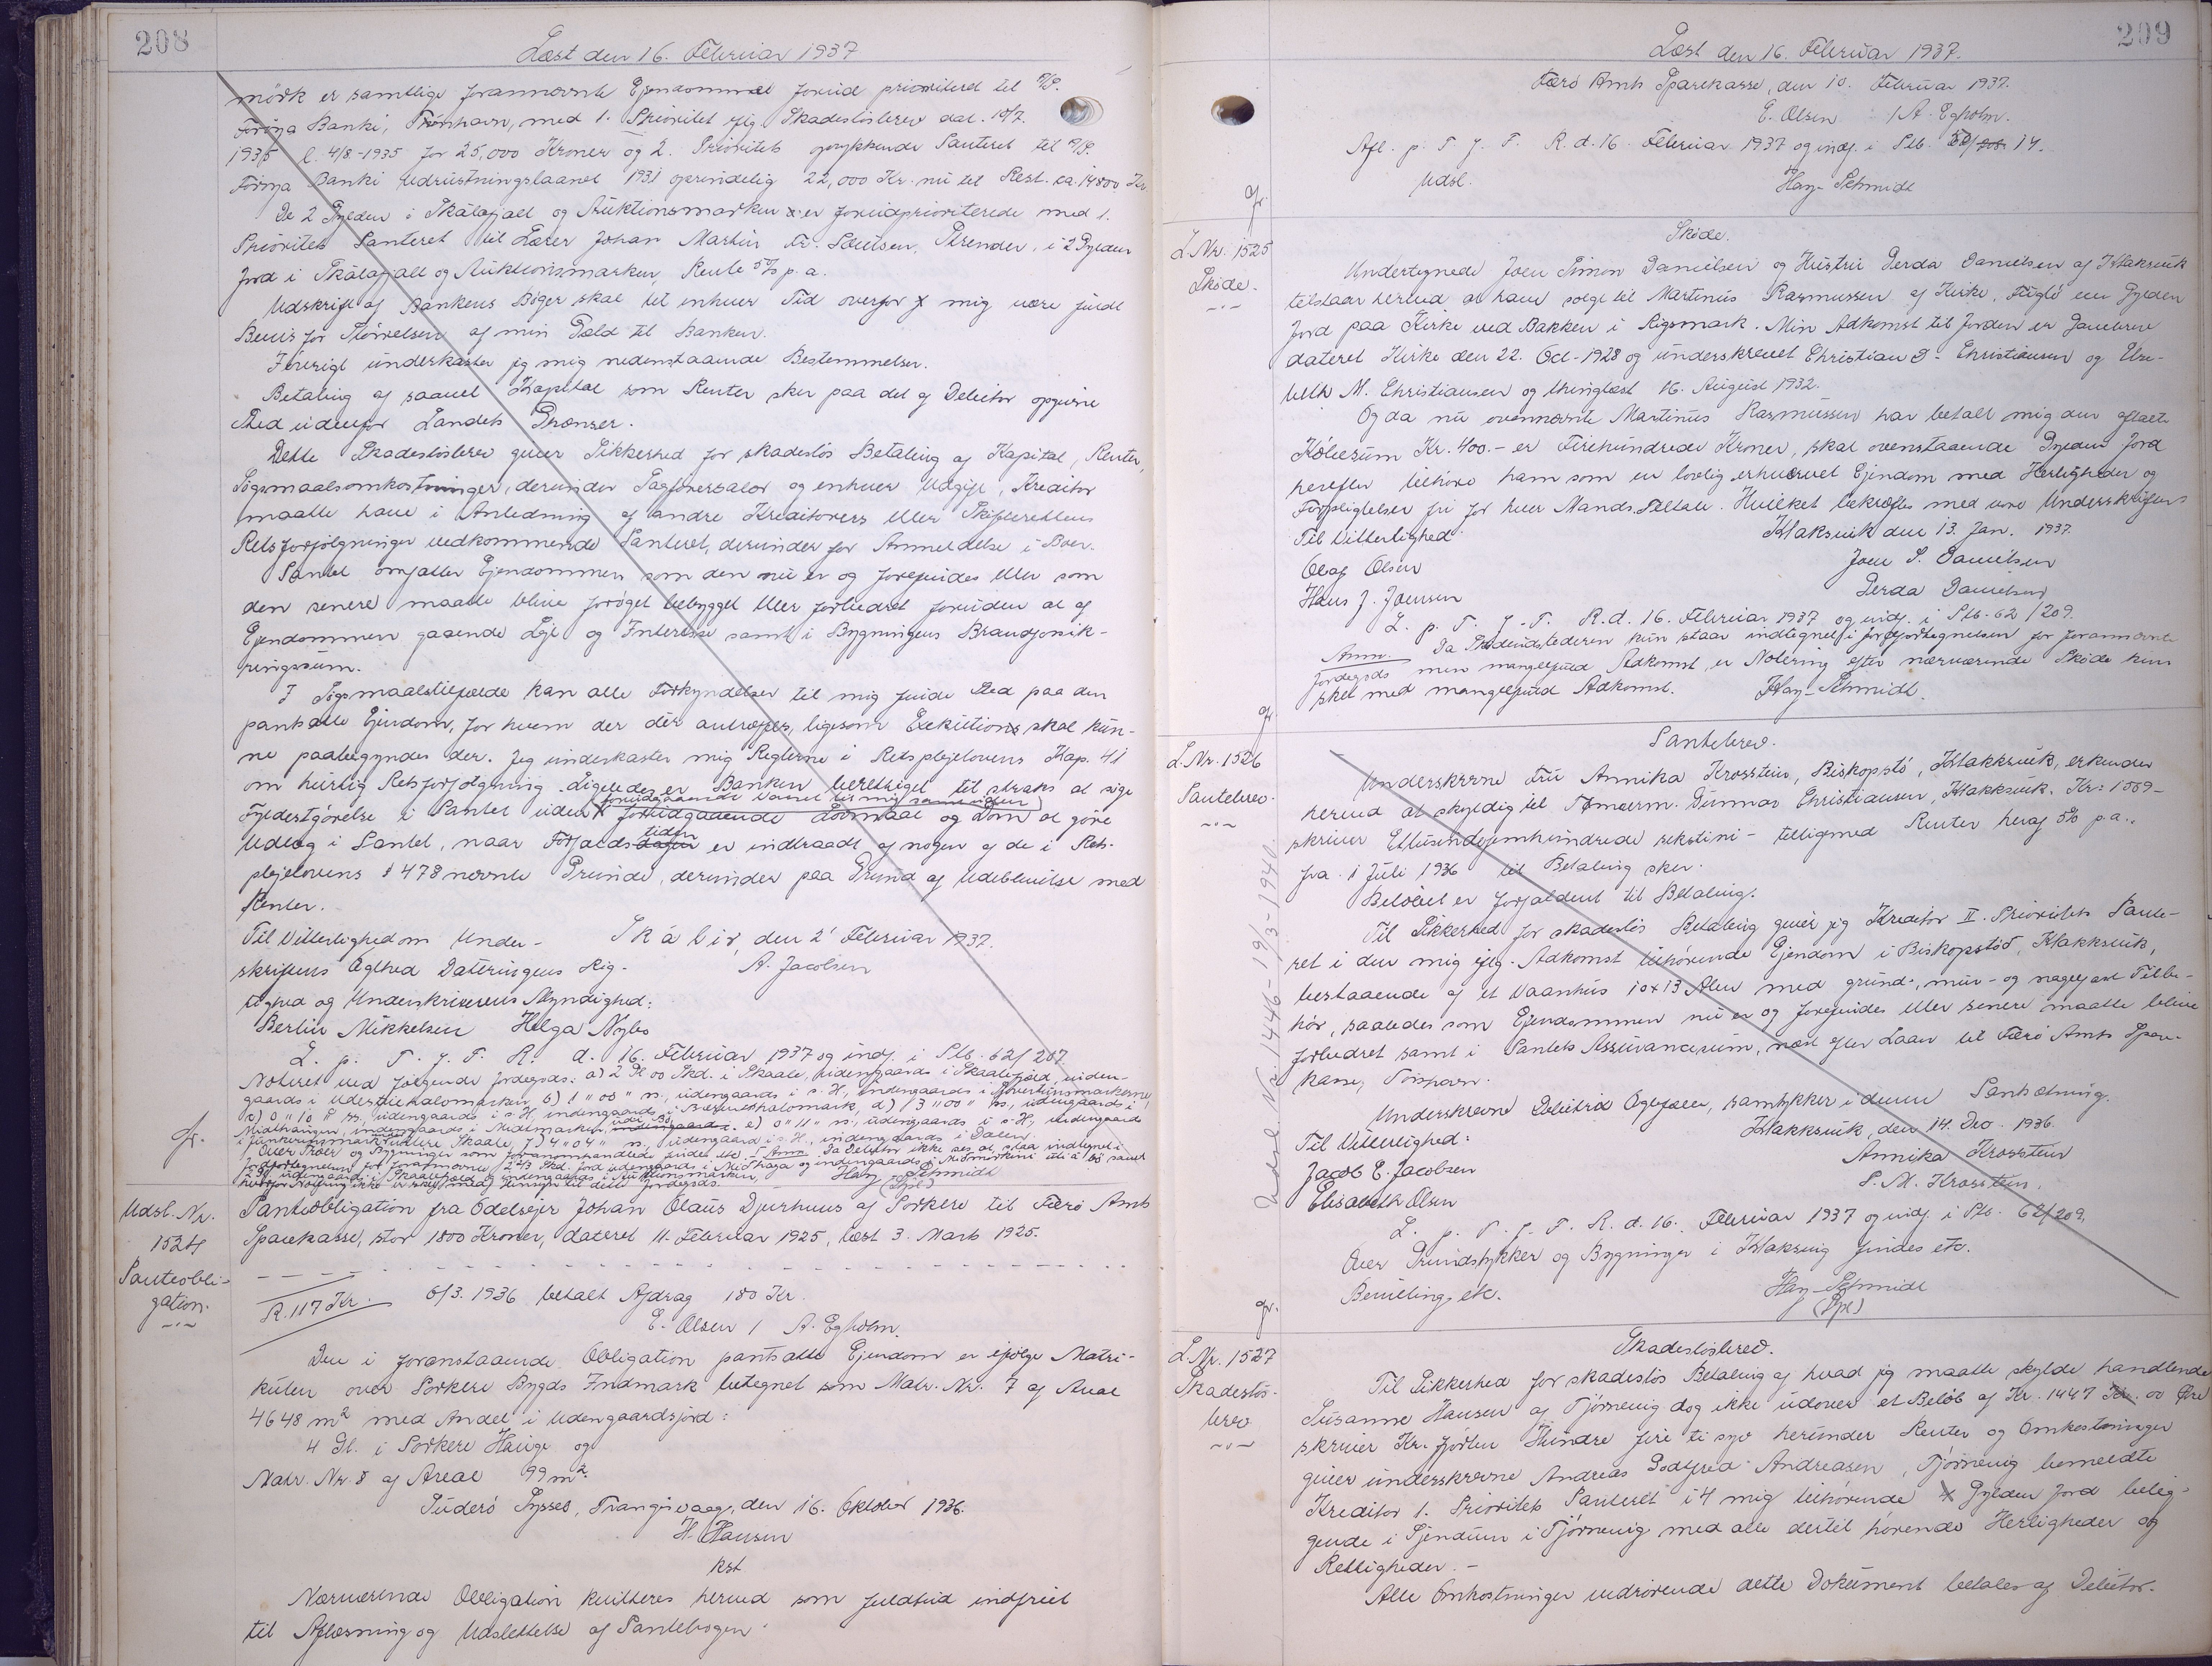 208
Læst den 16. Februar 1937
mörk er samtlige forannævnte Ejendomme forud prioriteret til A/S.
Föroya Banki, Thorshavn, med 1. Prioritet iflg. Skadeslösbrev dat. 10/7.
1935 l. 4/8-1935 for 25,000 Kroner og 2. Prioritets oprykkende Panteret til A/S.
Föroya Banki Udrustningslaanet 1931 oprindelig 22,000 Kr. nu til Rest. ca. 14800 Kr
De 2 Gylden i Skálafjall og Auktionsmarken er forudprioriterede med 1.
Prioritets Panteret til Lærer Johan Martin Fr. Poulsen, Strender, i 2 Gylden
Jord i Skálafjall og Auktionsmarken, Rente 5% p.a.
Udskrift af Bankens Böger skal til enhver Tid overfor mig være fuldt
Bevis for Störrelsen af min Gæld til Banken.
Iövrigt underkaster jeg mig nedenstaaende Bestemmelser.
Betaling af saavel Kapital som Renter sker paa det af Debitor opgivne
Sted udenfor Landets Grænser.
Dette Skadeslösbrev giver Sikkerhed for skadeslös Betaling af Kapital, Renter,
Sögsmaalsomkostninger, derunder Sagförersalær og enhver Udgift, Kreditor
maatte have i Anledning af andre Kreditorers eller Skifterettens
Retsforfölgninger vedkommende Pantet, derunder for Anmeldelse i Boer.
Pantet omfatter Ejendommen som den nu er og forefindes eller som
den senere maatte blive foröget bebygget eller forbedret foruden at af
Ejendommen gaaende Leje og Interesse samt i Bygningens Brandforsik-
ringssum.
I Sögsmaalstilfælde kan alle Forkyndelser til mig finde Sted paa den
pantsatte Ejendom, for hvem der dér antræffes, ligesom Exekution skal kun-
ne paabegyndes der. Jeg underkaster mig Reglerne i Retsplejelovens Kap. 41
om hurtig Retsforfölgning. Ligeledes er Banken berettiget til straks at söge
Fyldestgörelse i Pantet uden forudgaaende Lovmaal og Dom at göre
Udlæg i Pantet, naar Forfaldstiden er indtraadt af nogen af de i Rets-
plejelovens § 478 nævnte Grunde, derunder paa Grund af Udeblivelse med
Renter.
Til Vitterlighed om Under-
Skálir, den 2' Februar 1937.
skriftens Ægthed Dateringens Rig-
A. Jacobsen
tighed og Underskriverens Myndighed:
Berlin Mikkelsen Helga Nybo
L. p. T. f. F. R. d. 16. Februar 1937 og indf. i Ptb. 62/207
Noteret ved følgende Jordegods: a) 2 Gl. 00 Skd. i Skaale, udengaards i Skaalefjeld, inden-
Udsl. Nr.
1524
Panteobli-
gation.
Panteobligation fra Odelsejer Johan Olaus Djurhuus af Porkere til Færö Amts
Sparekasse, stor 1800 Kroner, dateret 11. Februar 1925, læst 3. Marts 1925.
R. 117 Kr. 6/3. 1936 betalt Afdrag 180 Kr.
E. Olsen / A. Egholm.
Den i foranstaaende Obligation pantsatte Ejendom er ifölge Matri-
kulen over Porkere Bygds Indmark betegnet som Matr. Nr. 7 af Areal
4648 m² med Andel i Udengaardsjord:
4 Gl. i Porkere Hauge og
Matr. Nr. 8 af Areal 99 m².
Suderö Syssel, Trangisvaag, den 16. Oktober 1936.
H. Hansen
kst
Nærværende Obligation kvitteres herved som fuldtud indfriet
til Aflæsning og Udslettelse af Pantebogen.
209
Læst den 16. Februar 1937.
Færö Amts Sparekasse, den 10. Februar 1937.
E. Olsen / A. Egholm.
Afl. p. T. f. F. R. d. 16. Februar 1937 og indf. i Ptb.
Udsl.
Hay-Schmidt
L. Nr. 1525
Sköde.
Sköde.
Undertegnede Joen Simon Danielsen og Hustru Gerda Danielsen af Klaksvik
tilstaar herved at have solgt til Martinus Rasmussen af Kirke, Fuglö een Gylden
Jord paa Kirke ved Bakken i Rigsmark. Min Adkomst til Jorden er Gavebrev
dateret Kirke den 22. Oct-1928 og underskrevet Christian D. Christiansen og Elsa-
beth M. Christiansen og thinglæst 16. August 1932.
Og da nu ovennævnte Martinus Rasmussen har betalt mig den aftalte
Köbesum Kr. 400.- er Firehundrede Kroner, skal ovenstaaende Gylden Jord
herefter tilhöre ham som en lovlig erhvervet Ejendom med Herligheder og
Forpligtelser fri for hver Mands Tiltale. Hvilket bekræftes med vore Underskrifter
Til Vitterlighed: Klaksvik den 13. Jan. 1937.
Olaf Olsen Joen S. Danielsen
Hans J. Joensen Gerda Danielsen
L. p. T. f. F. R. d. 16. Februar 1937 og indf. i Ptb. 62/209.
Anm. Da Skødeudstederen kun staar indtegnet i Jordfortegnelsen for forannævnte
Jordegods men mangelfuld Adkomst, er Notering efter nærværende Sköde kun
sket med mangelfuld Adkomst. Hay-Schmidt.
L. Nr. 1526
Pantebrev.
Pantebrev.
Underskrevne Fru Annika Krosstein, Biskopstö, Klakksvik, erkender
herved at skyldig til Tömmerm. Gunnar Christiansen, Klakksvik. Kr: 1569-
skriver Ettusindefemhundrede sekstini- tilligemed Renter heraf 5% p.a..
fra 1 Juli 1936 til Betaling sker.
Belöbet er forfaldent til Betaling.
Til Sikkerhed for skadeslös Betaling giver jeg Kreditor II. Prioritets Pante-
ret i den mig iflg. Adkomst tilhörende Ejendom i Biskopstöð, Klakksvik,
bestaaende af et Vaanhus 10x13 Alen med grund-, mur- og nagelfast Tilbe-
hör, saaledes som Ejendommen nu er og forefindes eller senere maatte blive
forbedret samt i Pantets Assurancesum, næst efter Laan til Færö Amts Spare-
kasse, Torshavn.
Underskrevne Debitrix Ægtefælle, samtykker i denne Pantsætning.
Til Vitterlighed: Klakksvik, den 14. Dec. 1936.
Jacob E. Jacobsen Annika Krosstein
Elisabeth Olsen P. M. Krosstein.
L. p. T. f. F. R. d. 16. Februar 1937 og indf. i Ptb. 62/209.
Over Grundstykker og Bygninger i Klaksvig findes etc.
Bevilling, etc. Hay-Schmidt
Udsl. Nr. 1446 - 19/3-1940.
L. Nr. 1527
Skadeslös-
brev
Skadeslösbrev.
Til Sikkerhed for skadeslös Betaling af hvad jeg maatte skylde handlende
Susanne Hansen af Tjörnevig dog ikke udover et Belöb af Kr. 1447 Kr. 00 Öre
skriver Kr. fjorten Hundre firi ti syv herunder Renter og Omkostninger
giver underskrevne Andreas Godtfred Andreasen, Tjörnevig bemeldte
Kreditor 1. Prioritets Panteret i 4 mig tilhörende Gylden Jord belig-
gende i Sjendum i Tjörnevig med alle dertil hörende Herligheder og
Rettigheder.-
Alle Omkostninger vedrörende dette Dokument betales af Debitor.